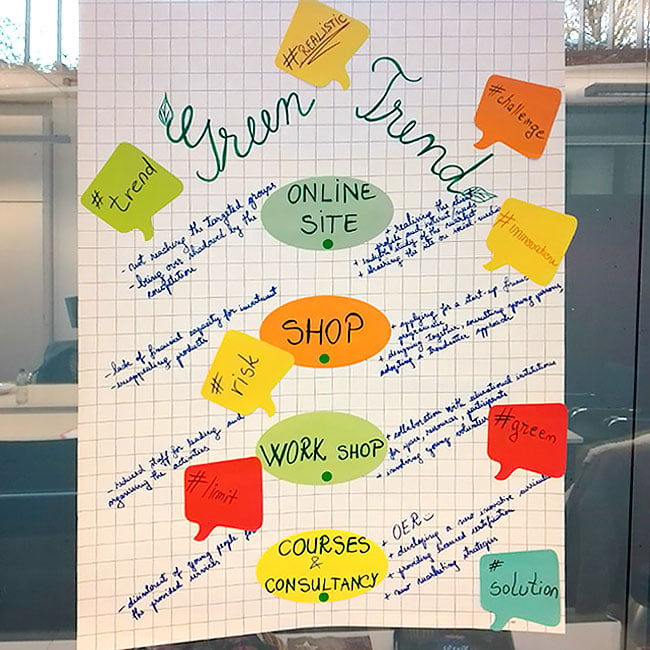 #REALISTIC
Green Trend
#challenge
#trend
ONLINE
SITE
- not reaching the targeted groups
- being over shadowed by the
competition
+ realising the client
profile and interest/needs
study of the market
+ sharing the site on social media
#innovations
SHOP
- lack of financial capacity for investment
- unappealing products
+ applying for a start-up
programme
+ designing together, consulting young persons,
adopting a trendsetter approach
#risk
WORK SHOP
- reduced staff for leading and
organising the activities
+ collaboration with educational institutions
for space, resources, participants
+ involving young volunteers
#green
#limit
COURSES
&
CONSULTANCY
- disinterest of young people for
the provided services
+ OER
+ developing a new innovative curriculum
+ providing licensed certification
+ new marketing strategies
#
solution